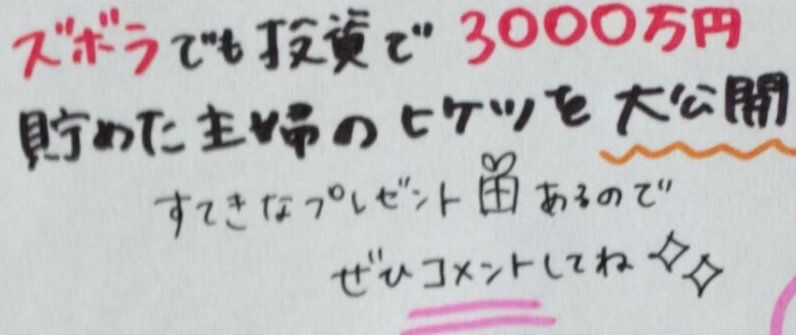 ズボラでも投資で3000万円
貯めた主婦のヒケツを大公開
すてきなプレゼントあるので
ぜひコメントしてね